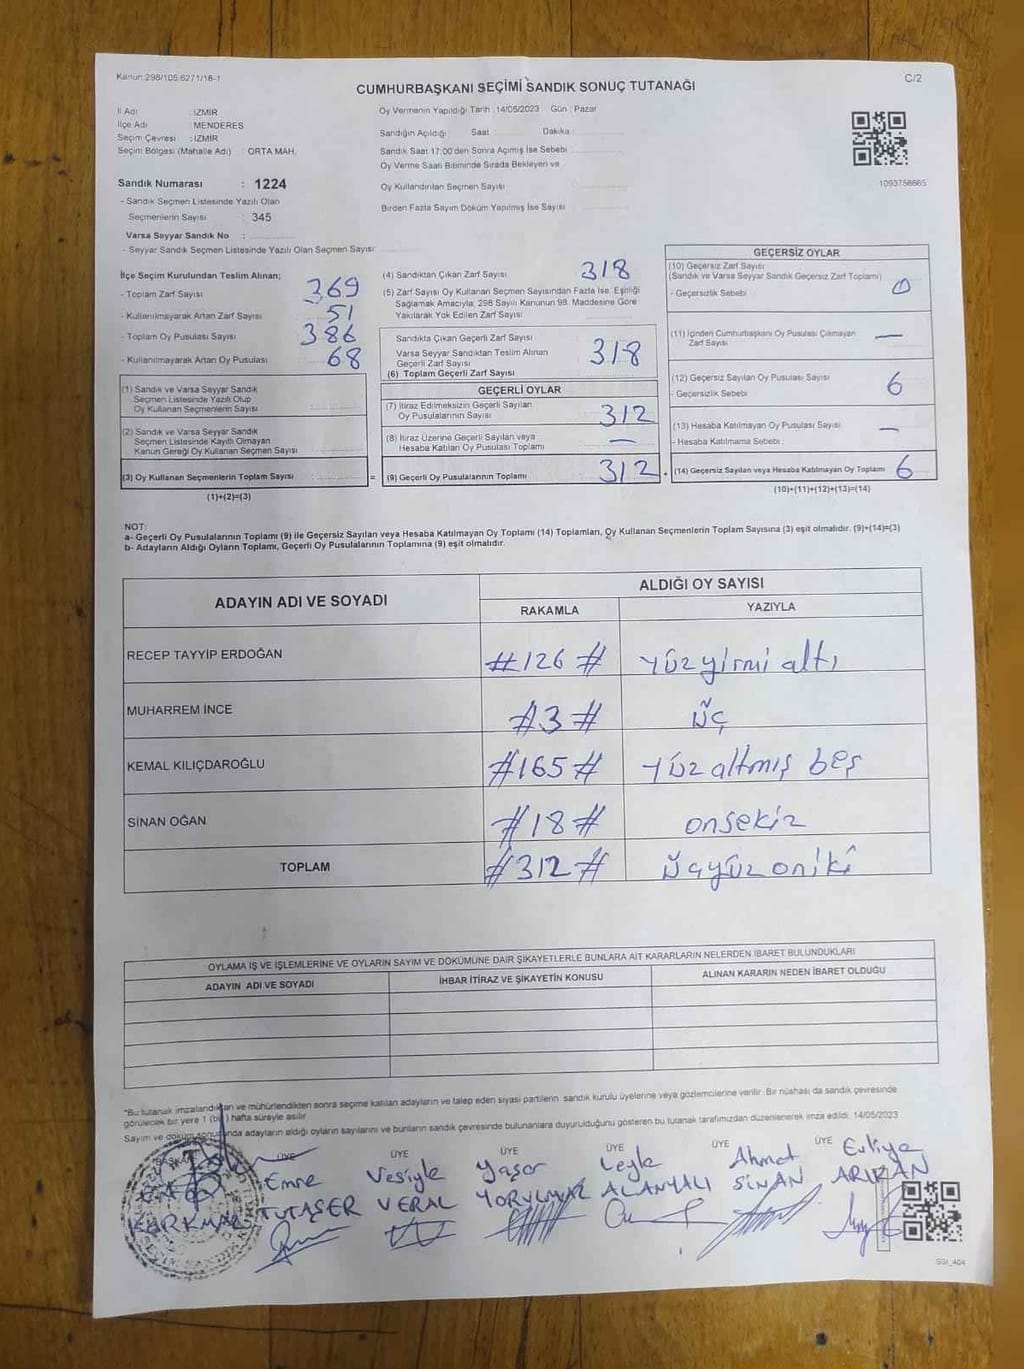 Kanun:298/105,6271/18-1
C/2
CUMHURBAŞKANI SEÇİMİ SANDIK SONUÇ TUTANAĞI
İl Adı : İZMİR
İlçe Adı : MENDERES
Seçim Çevresi : İZMİR
Seçim Bölgesi (Mahalle Adı) : ORTA MAH.
Oy Vermenin Yapıldığı Tarih : 14/05/2023 Gün : Pazar
Sandığın Açıldığı Saat Dakika
Sandık Saat 17:00'den Sonra Açımış İse Sebebi :
Oy Verme Saati Bitiminde Sırada Bekleyen ve
Oy Kullandırılan Seçmen Sayısı
Birden Fazla Sayım Döküm Yapılmış İse Sayısı
1093756665
Sandık Numarası : 1224
- Sandık Seçmen Listesinde Yazılı Olan
Seçmenlerin Sayısı : 345
Varsa Seyyar Sandık No :
- Seyyar Sandık Seçmen Listesinde Yazılı Olan Seçmen Sayısı:
İlçe Seçim Kurulundan Teslim Alınan;
- Toplam Zarf Sayısı : 369
- Kullanılmayarak Artan Zarf Sayısı : 51
- Toplam Oy Pusulası Sayısı : 386
- Kullanılmayarak Artan Oy Pusulası : 68
(1) Sandık ve Varsa Seyyar Sandık
Seçmen Listesinde Yazılı Olup
Oy Kullanan Seçmenlerin Sayısı
(2) Sandık ve Varsa Seyyar Sandık
Seçmen Listesinde Kayıtlı Olmayan
Kanun Gereği Oy Kullanan Seçmen Sayısı
(3) Oy Kullanan Seçmenlerin Toplam Sayısı =
(1)+(2)=(3)
(4) Sandıktan Çıkan Zarf Sayısı : 318
(5) Zarf Sayısı Oy Kullanan Seçmen Sayısından Fazla İse, Eşitliği
Sağlamak Amacıyla; 298 Sayılı Kanunun 98. Maddesine Göre
Yakılarak Yok Edilen Zarf Sayısı
Sandıkta Çıkan Geçerli Zarf Sayısı
Varsa Seyyar Sandıktan Teslim Alınan
Geçerli Zarf Sayısı
(6) Toplam Geçerli Zarf Sayısı 318
GEÇERLİ OYLAR
(7) İtiraz Edilmeksizin Geçerli Sayılan
Oy Pusulalarının Sayısı 312
(8) İtiraz Üzerine Geçerli Sayılan veya
Hesaba Katılan Oy Pusulası Toplamı : —
(9) Geçerli Oy Pusulalarının Toplamı : 312 +
GEÇERSİZ OYLAR
(10) Geçersiz Zarf Sayısı
(Sandık ve Varsa Seyyar Sandık Geçersiz Zarf Toplamı)
- Geçersizlik Sebebi : 0
(11) İçinden Cumhurbaşkanı Oy Pusulası Çıkmayan
Zarf Sayısı —
(12) Geçersiz Sayılan Oy Pusulası Sayısı
- Geçersizlik Sebebi : 6
(13) Hesaba Katılmayan Oy Pusulası Sayısı —
- Hesaba Katılmama Sebebi :
(14) Geçersiz Sayılan veya Hesaba Katılmayan Oy Toplamı 6
(10)+(11)+(12)+(13)=(14)
NOT:
a- Geçerli Oy Pusulalarının Toplamı (9) ile Geçersiz Sayılan veya Hesaba Katılmayan Oy Toplamı (14) Toplamları, Oy Kullanan Seçmenlerin Toplam Sayısına (3) eşit olmalıdır. (9)+(14)=(3)
b- Adayların Aldığı Oyların Toplamı, Geçerli Oy Pusulalarının Toplamına (9) eşit olmalıdır.
ADAYIN ADI VE SOYADI
ALDIĞI OY SAYISI
RAKAMLA YAZIYLA
RECEP TAYYİP ERDOĞAN #126# yüz yirmi altı
MUHARREM İNCE #3# üç
KEMAL KILIÇDAROĞLU #165# yüz altmış beş
SİNAN OĞAN #18# onsekiz
TOPLAM #312# üçyüz oniki
OYLAMA İŞ VE İŞLEMLERİNE VE OYLARIN SAYIM VE DÖKÜMÜNE DAİR ŞİKAYETLERLE BUNLARA AİT KARARLARIN NELERDEN İBARET BULUNDUKLARI
ADAYIN ADI VE SOYADI İHBAR İTİRAZ VE ŞİKAYETİN KONUSU ALINAN KARARIN NEDEN İBARET OLDUĞU
*Bu tutanak imzalandıktan ve mühürlendikten sonra seçime katılan adayların ve talep eden siyasi partilerin sandık kurulu üyelerine veya gözlemcilerine verilir. Bir nüshası da sandık çevresinde
görülecek bir yere 1 (bir) hafta süreyle asılır.
Sayım ve döküm sonucunda adayların aldığı oyların sayılarını ve bunların sandık çevresinde bulunanlara duyurulduğunu gösteren bu tutanak tarafımızdan düzenlenerek imza edildi. 14/05/2023
BAŞKAN ÜYE ÜYE ÜYE ÜYE ÜYE ÜYE
Emre Vesiyle Yaşar Leyla Ahmet Evliya
KORKMAZ TUTAŞER VERAL YORULMAZ ALANYALI SİNAN ARIKAN
SSI_404